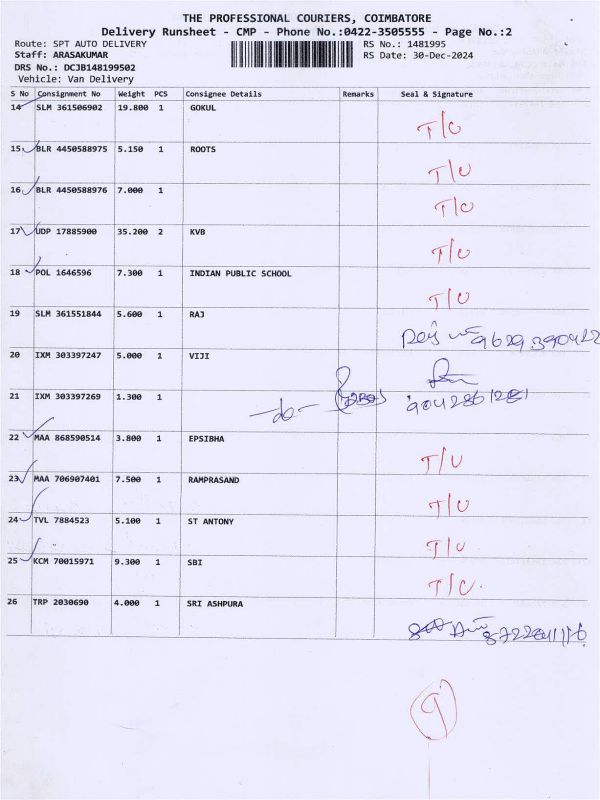 THE PROFESSIONAL COURIERS, COIMBATORE
Delivery Runsheet - CMP - Phone No.:0422-3505555 - Page No.:2
Route: SPT AUTO DELIVERY RS No.: 1481995
Staff: ARASAKUMAR RS Date: 30-Dec-2024
DRS No.: DCJB148199502
Vehicle: Van Delivery
S No Consignment No Weight PCS Consignee Details Remarks Seal & Signature
14 SLM 361506902 19.800 1 GOKUL
T/C
15 BLR 4450588975 5.150 1 ROOTS
T/U
16 BLR 4450588976 7.000 1
T/U
17 UDP 17885900 35.200 2 KVB
T/U
18 POL 1646596 7.300 1 INDIAN PUBLIC SCHOOL
T/U
19 SLM 361551844 5.600 1 RAJ
20 IXM 303397247 5.000 1 VIJI
21 IXM 303397269 1.300 1
-do- 9042861281
22 MAA 868590514 3.800 1 EPSIBHA
T/U
23 MAA 706907401 7.500 1 RAMPRASAND
T/U
24 TVL 7884523 5.100 1 ST ANTONY
T/U
25 KCM 70015971 9.300 1 SBI
T/C.
26 TRP 2030690 4.000 1 SRI ASHPURA
9